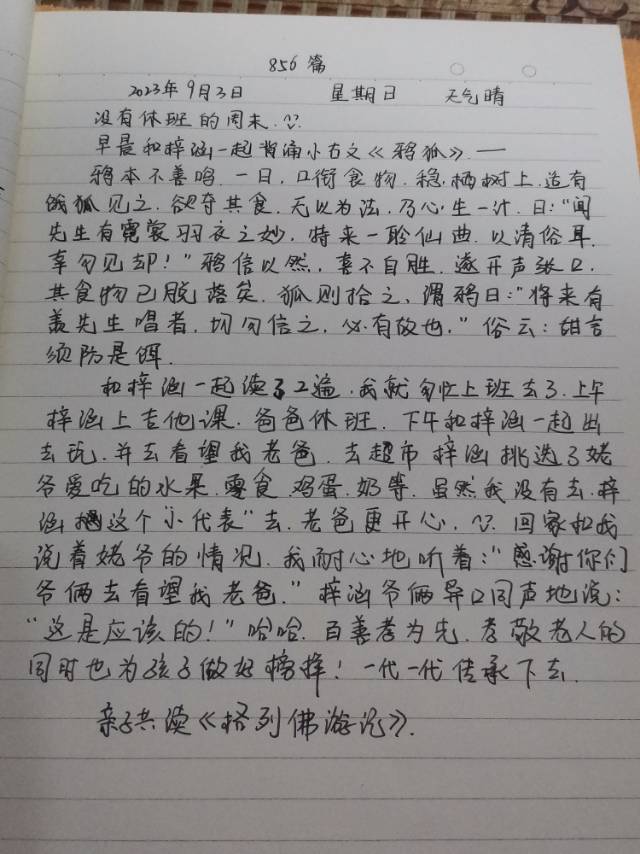 856篇
2023年9月3日 星期日 天气晴
没有休班的周末.
早晨和梓涵一起背诵小古文《鸦狐》.—
鸦本不善鸣.一日,口衔食物.稳栖树上.适有
饿狐见之.欲夺其食.无以为法,乃心生一计.曰:“闻
先生有霓裳羽衣之妙.特来一聆仙曲.以清俗耳.
幸勿见却!”鸦信以然,喜不自胜.遂开声张口.
其食物已脱落矣.狐则拾之.谓鸦曰:“将来有
羡先生唱者.切勿信之.必有故也.”俗云:甜言
须防是饵.
和梓涵一起读了2遍.我就匆忙上班去了.上午
梓涵上吉他课.爸爸休班.下午和梓涵一起出
去玩.并去看望我老爸.去超市梓涵挑选了姥
爷爱吃的水果.零食.鸡蛋.奶等.虽然我没有去.梓
涵这个“小代表”去.老爸更开心.回家和我
说着姥爷的情况.我耐心地听着:“感谢你们
爷俩去看望我老爸.”梓涵爷俩异口同声地说:
“这是应该的!”哈哈.百善孝为先.孝敬老人的
同时也为孩子做好榜样!一代一代传承下去.
亲子共读《格列佛游记》.